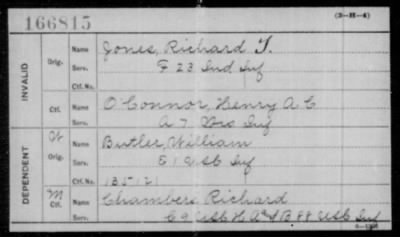 166815
(3-H-4)
INVALID
Orig.
Name Jones, Richard T.
Serv. F 23 Ind Inf
Ctf. No.
Ctf.
Name O'Connor, Henry A C
Serv. A 7 Inf
DEPENDENT
W
Orig.
Name Butler, William
Serv. E 1 Inf
Ctf. No. 135121
M
Ctf.
Name Chambers Richard
Serv. C 9 USC H A & B 88 USC Inf